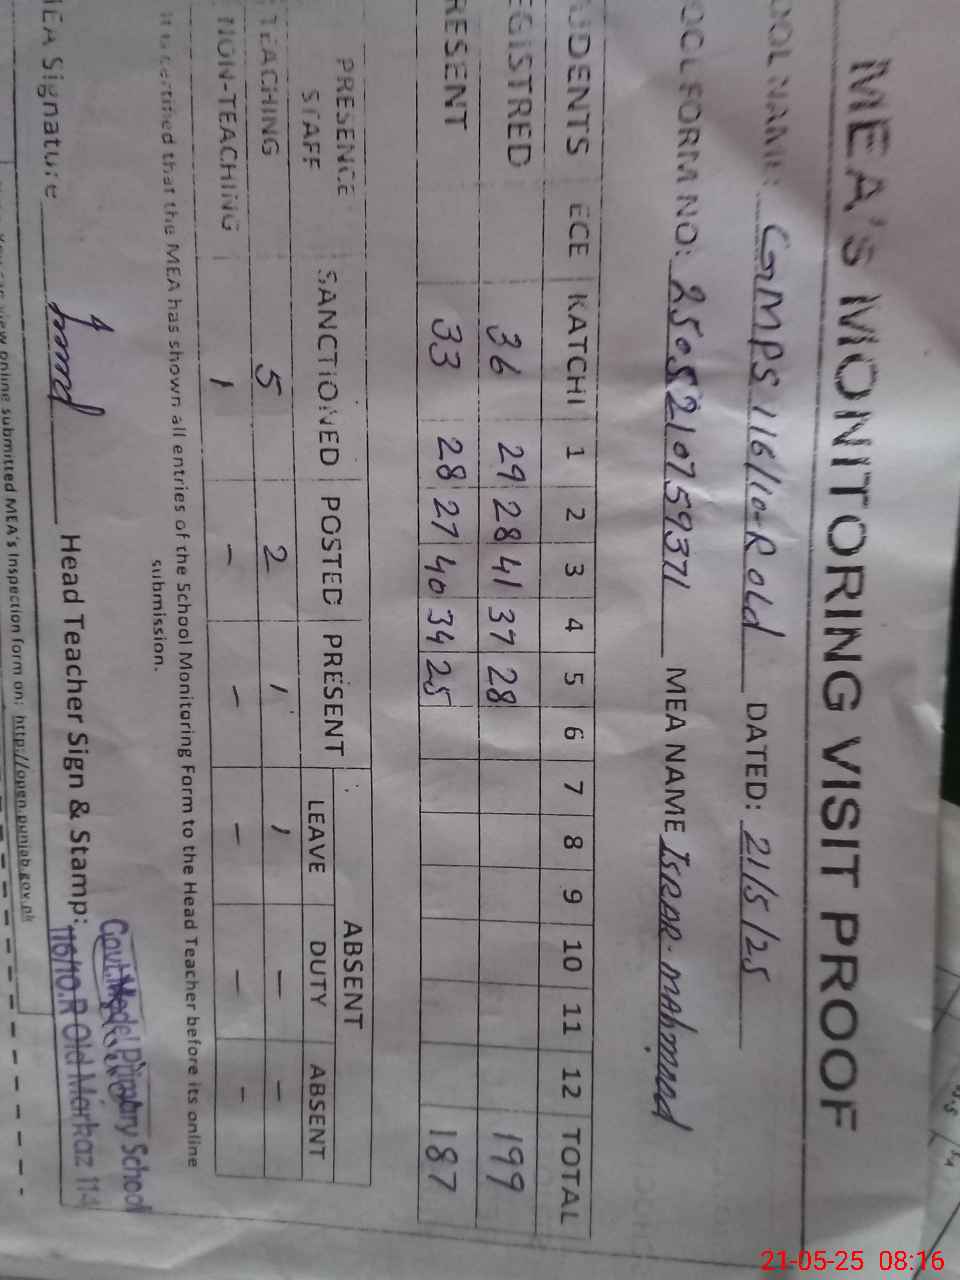 MEA'S MONITORING VISIT PROOF
OOL NAME: GMPS 116/10-R old DATED: 21/5/25
OOL FORM NO: 2505210759371 MEA NAME ISRAR. mahmood
UDENTS ECE KATCHI 1 2 3 4 5 6 7 8 9 10 11 12 TOTAL
EGISTRED 36 29 28 41 37 28 199
RESENT 33 28 27 40 34 25 187
PRESENCE STAFF SANCTIONED POSTED PRESENT ABSENT
LEAVE DUTY ABSENT
TEACHING 5 2 1 1 - -
NON-TEACHING 1 - - - - -
It is certified that the MEA has shown all entries of the School Monitoring Form to the Head Teacher before its online
submission.
MEA Signature Head Teacher Sign & Stamp:
Govt. Model Primary School
116/10.R Old Markaz 114
You can view online submitted MEA's Inspection form on: http://open.punjab.gov.pk
21-05-25 08:16